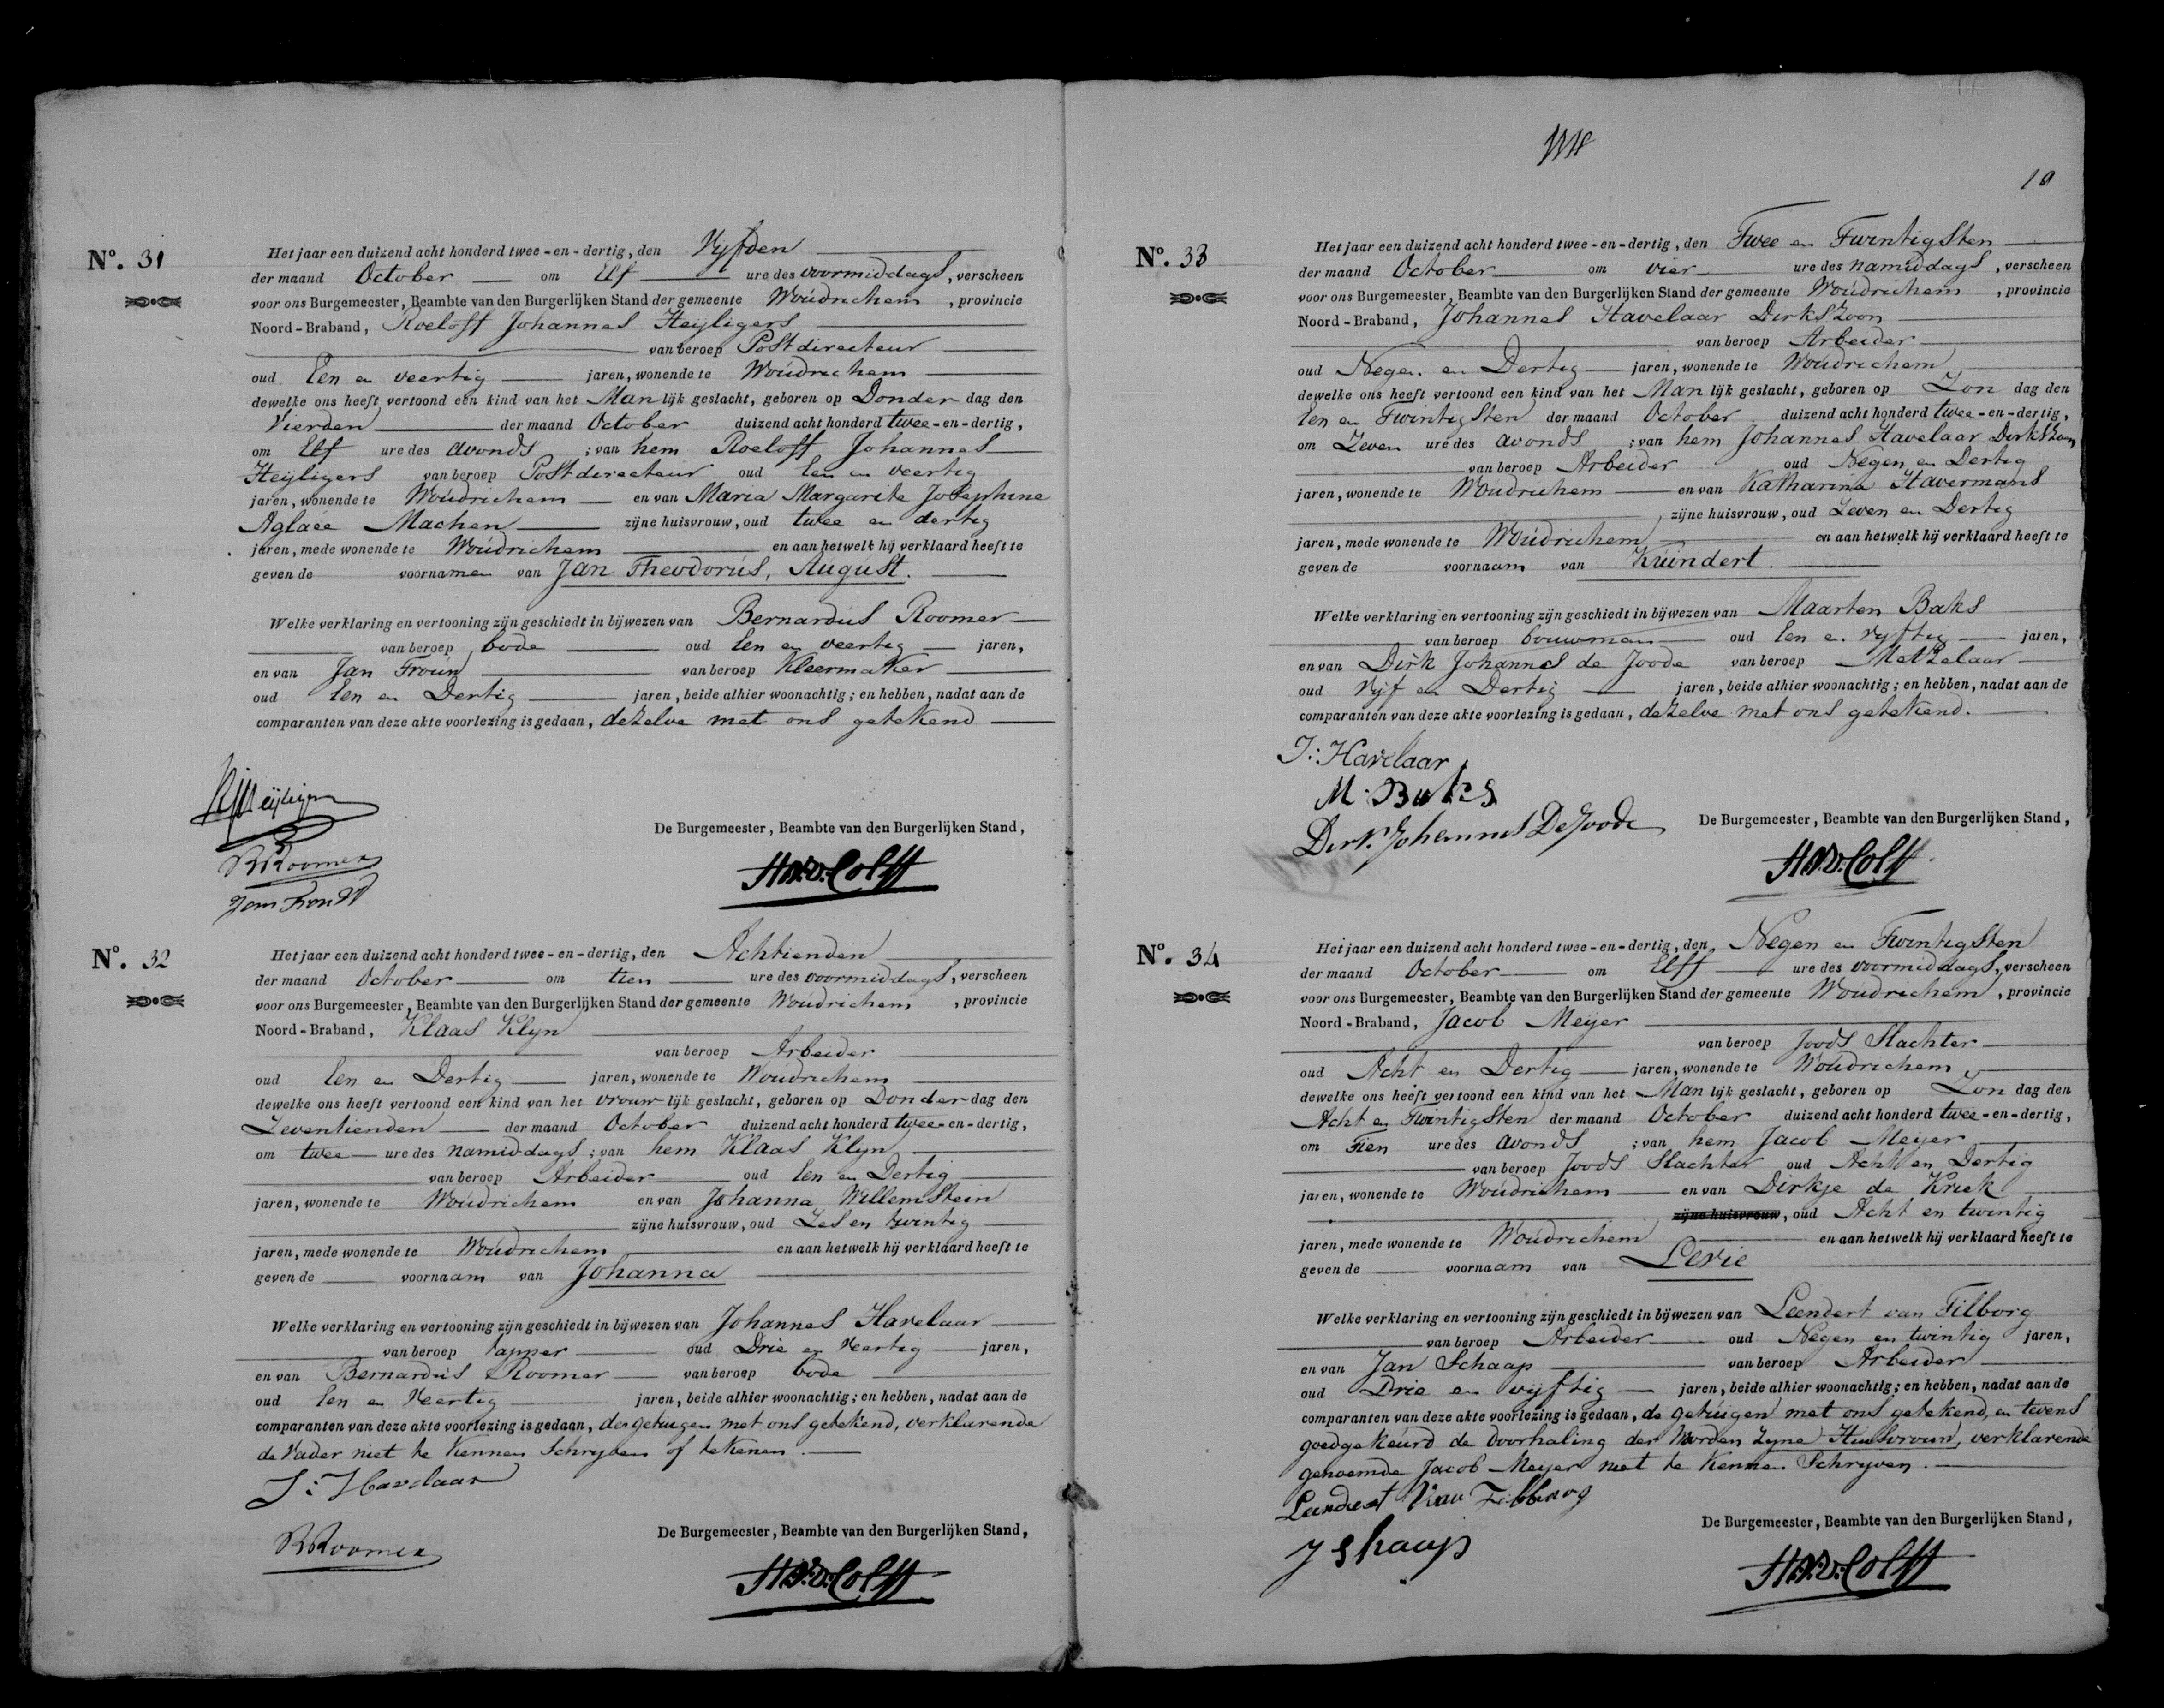 Nº. 31
Het jaar een duizend acht honderd twee-en-dertig, den Vyfden
der maand October om Elf ure des voormiddags, verscheen
voor ons Burgemeester, Beambte van den Burgerlijken Stand der gemeente Woúdrichem, provincie
Noord-Braband, Roeloff Johannes Heyligers
van beroep Postdirecteur
oud Een en veertig jaren, wonende te Woúdrichem
dewelke ons heeft vertoond een kind van het Manlijk geslacht, geboren op Donderdag den
Vierden der maand October duizend acht honderd twee-en-dertig,
om Elf ure des avonds; van hem Roeloff Johannes
Heyligers van beroep Postdirecteur oud Een en veertig
jaren, wonende te Woúdrichem en van Maria Margarite Josephine
Aglaée Machen zijne huisvrouw, oud twee en dertig
jaren, mede wonende te Woúdrichem en aan hetwelk hij verklaard heeft te
geven de voornamen van Jan Theodorús, August.
Welke verklaring en vertooning zijn geschiedt in bijwezen van Bernardús Roomer
van beroep bode oud Een en veertig jaren,
en van Jan Troun van beroep Kleermaker
oud Een en Dertig jaren, beide alhier woonachtig; en hebben, nadat aan de
comparanten van deze akte voorlezing is gedaan, dezelve met ons getekend
RJHeyligers
BRoomer
De Burgemeester, Beambte van den Burgerlijken Stand,
Nº. 32
Het jaar een duizend acht honderd twee-en-dertig, den Achtienden
der maand October om tien ure des voormiddags, verscheen
voor ons Burgemeester, Beambte van den Burgerlijken Stand der gemeente Woúdrichem, provincie
Noord-Braband, Klaas Klyn
van beroep Arbeider
oud Een en Dertig jaren, wonende te Woúdrichem
dewelke ons heeft vertoond een kind van het vrouwlijk geslacht, geboren op Donderdag den
Zeventienden der maand October duizend acht honderd twee-en-dertig,
om twee ure des namiddags; van hem Klaas Klyn
van beroep Arbeider oud Een en Dertig
jaren, wonende te Woúdrichem en van Johanna Willemstein
zijne huisvrouw, oud Zes en twintig
jaren, mede wonende te Woúdrichem en aan hetwelk hij verklaard heeft te
geven de voornaam van Johanna
Welke verklaring en vertooning zijn geschiedt in bijwezen van Johannes Havelaar
van beroep Tapper oud Drie en Veertig jaren,
en van Bernardús Roomer van beroep bode
oud Een en Veertig jaren, beide alhier woonachtig; en hebben, nadat aan de
comparanten van deze akte voorlezing is gedaan, de getuigen met ons getekend, verklarende
de Vader niet te kennen Schryven of tekenen.
J: Havelaar
BRoomer
De Burgemeester, Beambte van den Burgerlijken Stand,
19
Nº. 33
Het jaar een duizend acht honderd twee-en-dertig, den Twee en Twintigsten
der maand October om vier ure des namiddags, verscheen
voor ons Burgemeester, Beambte van den Burgerlijken Stand der gemeente Woúdrichem, provincie
Noord-Braband, Johannes Havelaar Dirkszoon
van beroep Arbeider
oud Negen en Dertig jaren, wonende te Woúdrichem
dewelke ons heeft vertoond een kind van het Manlijk geslacht, geboren op Zondag den
Een en Twintigsten der maand October duizend acht honderd twee-en-dertig,
om Zeven ure des avonds; van hem Johannes Havelaar Dirkszoon
van beroep Arbeider oud Negen en Dertig
jaren, wonende te Woúdrichem en van Katharina Havermans
zijne huisvrouw, oud Zeven en Dertig
jaren, mede wonende te Woúdrichem en aan hetwelk hij verklaard heeft te
geven de voornaam van Kúindert.
Welke verklaring en vertooning zijn geschiedt in bijwezen van Maarten Baks
van beroep bouwman oud Een en Vyftig jaren,
en van Dirk Johannes de Joode van beroep Metzelaar
oud Vyf en Dertig jaren, beide alhier woonachtig; en hebben, nadat aan de
comparanten van deze akte voorlezing is gedaan, dezelve met ons getekend.
J: Havelaar
M. Baks
Dirk Johannes De Joode
De Burgemeester, Beambte van den Burgerlijken Stand,
Nº. 34
Het jaar een duizend acht honderd twee-en-dertig, den Negen en Twintigsten
der maand October om Elff ure des voormiddags, verscheen
voor ons Burgemeester, Beambte van den Burgerlijken Stand der gemeente Woúdrichem, provincie
Noord-Braband, Jacob Meyer
van beroep Joods Slachter
oud Acht en Dertig jaren, wonende te Woúdrichem
dewelke ons heeft vertoond een kind van het Manlijk geslacht, geboren op Zondag den
Acht en Twintigsten der maand October duizend acht honderd twee-en-dertig,
om Tien ure des avonds; van hem Jacob Meyer
van beroep Joods Slachter oud Acht en Dertig
jaren, wonende te Woúdrichem en van Dirkje de Kriek
zijne huisvrouw, oud Acht en twintig
jaren, mede wonende te Woúdrichem en aan hetwelk hij verklaard heeft te
geven de voornaam van Levie
Welke verklaring en vertooning zijn geschiedt in bijwezen van Leendert van Tilborg
van beroep Arbeider oud Negen en twintig jaren,
en van Jan Schaap van beroep Arbeider
oud Drie en vyftig jaren, beide alhier woonachtig; en hebben, nadat aan de
comparanten van deze akte voorlezing is gedaan, de getúigen met ons getekend, en tevens
goedgekeúrd de doorhaling der Worden Zyne Huisvrouw, verklarende
genoemde Jacob Meyer niet te kennen Schryven.
Leendert Van Tilborg
J Shaap
De Burgemeester, Beambte van den Burgerlijken Stand,